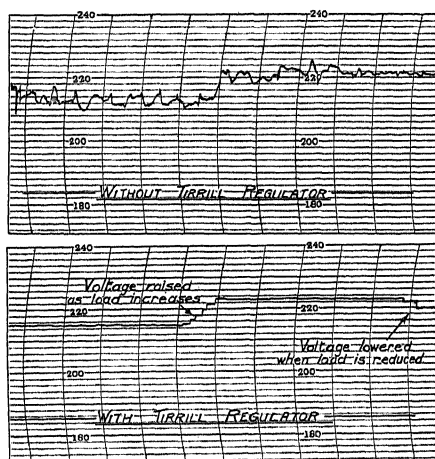 240 240
220 220
200 200
WITHOUT TIRRILL REGULATOR
180 180
240 240
Voltage raised
as load increases
220 220
Voltage lowered
when load is reduced
200 200
WITH TIRRILL REGULATOR
180 180